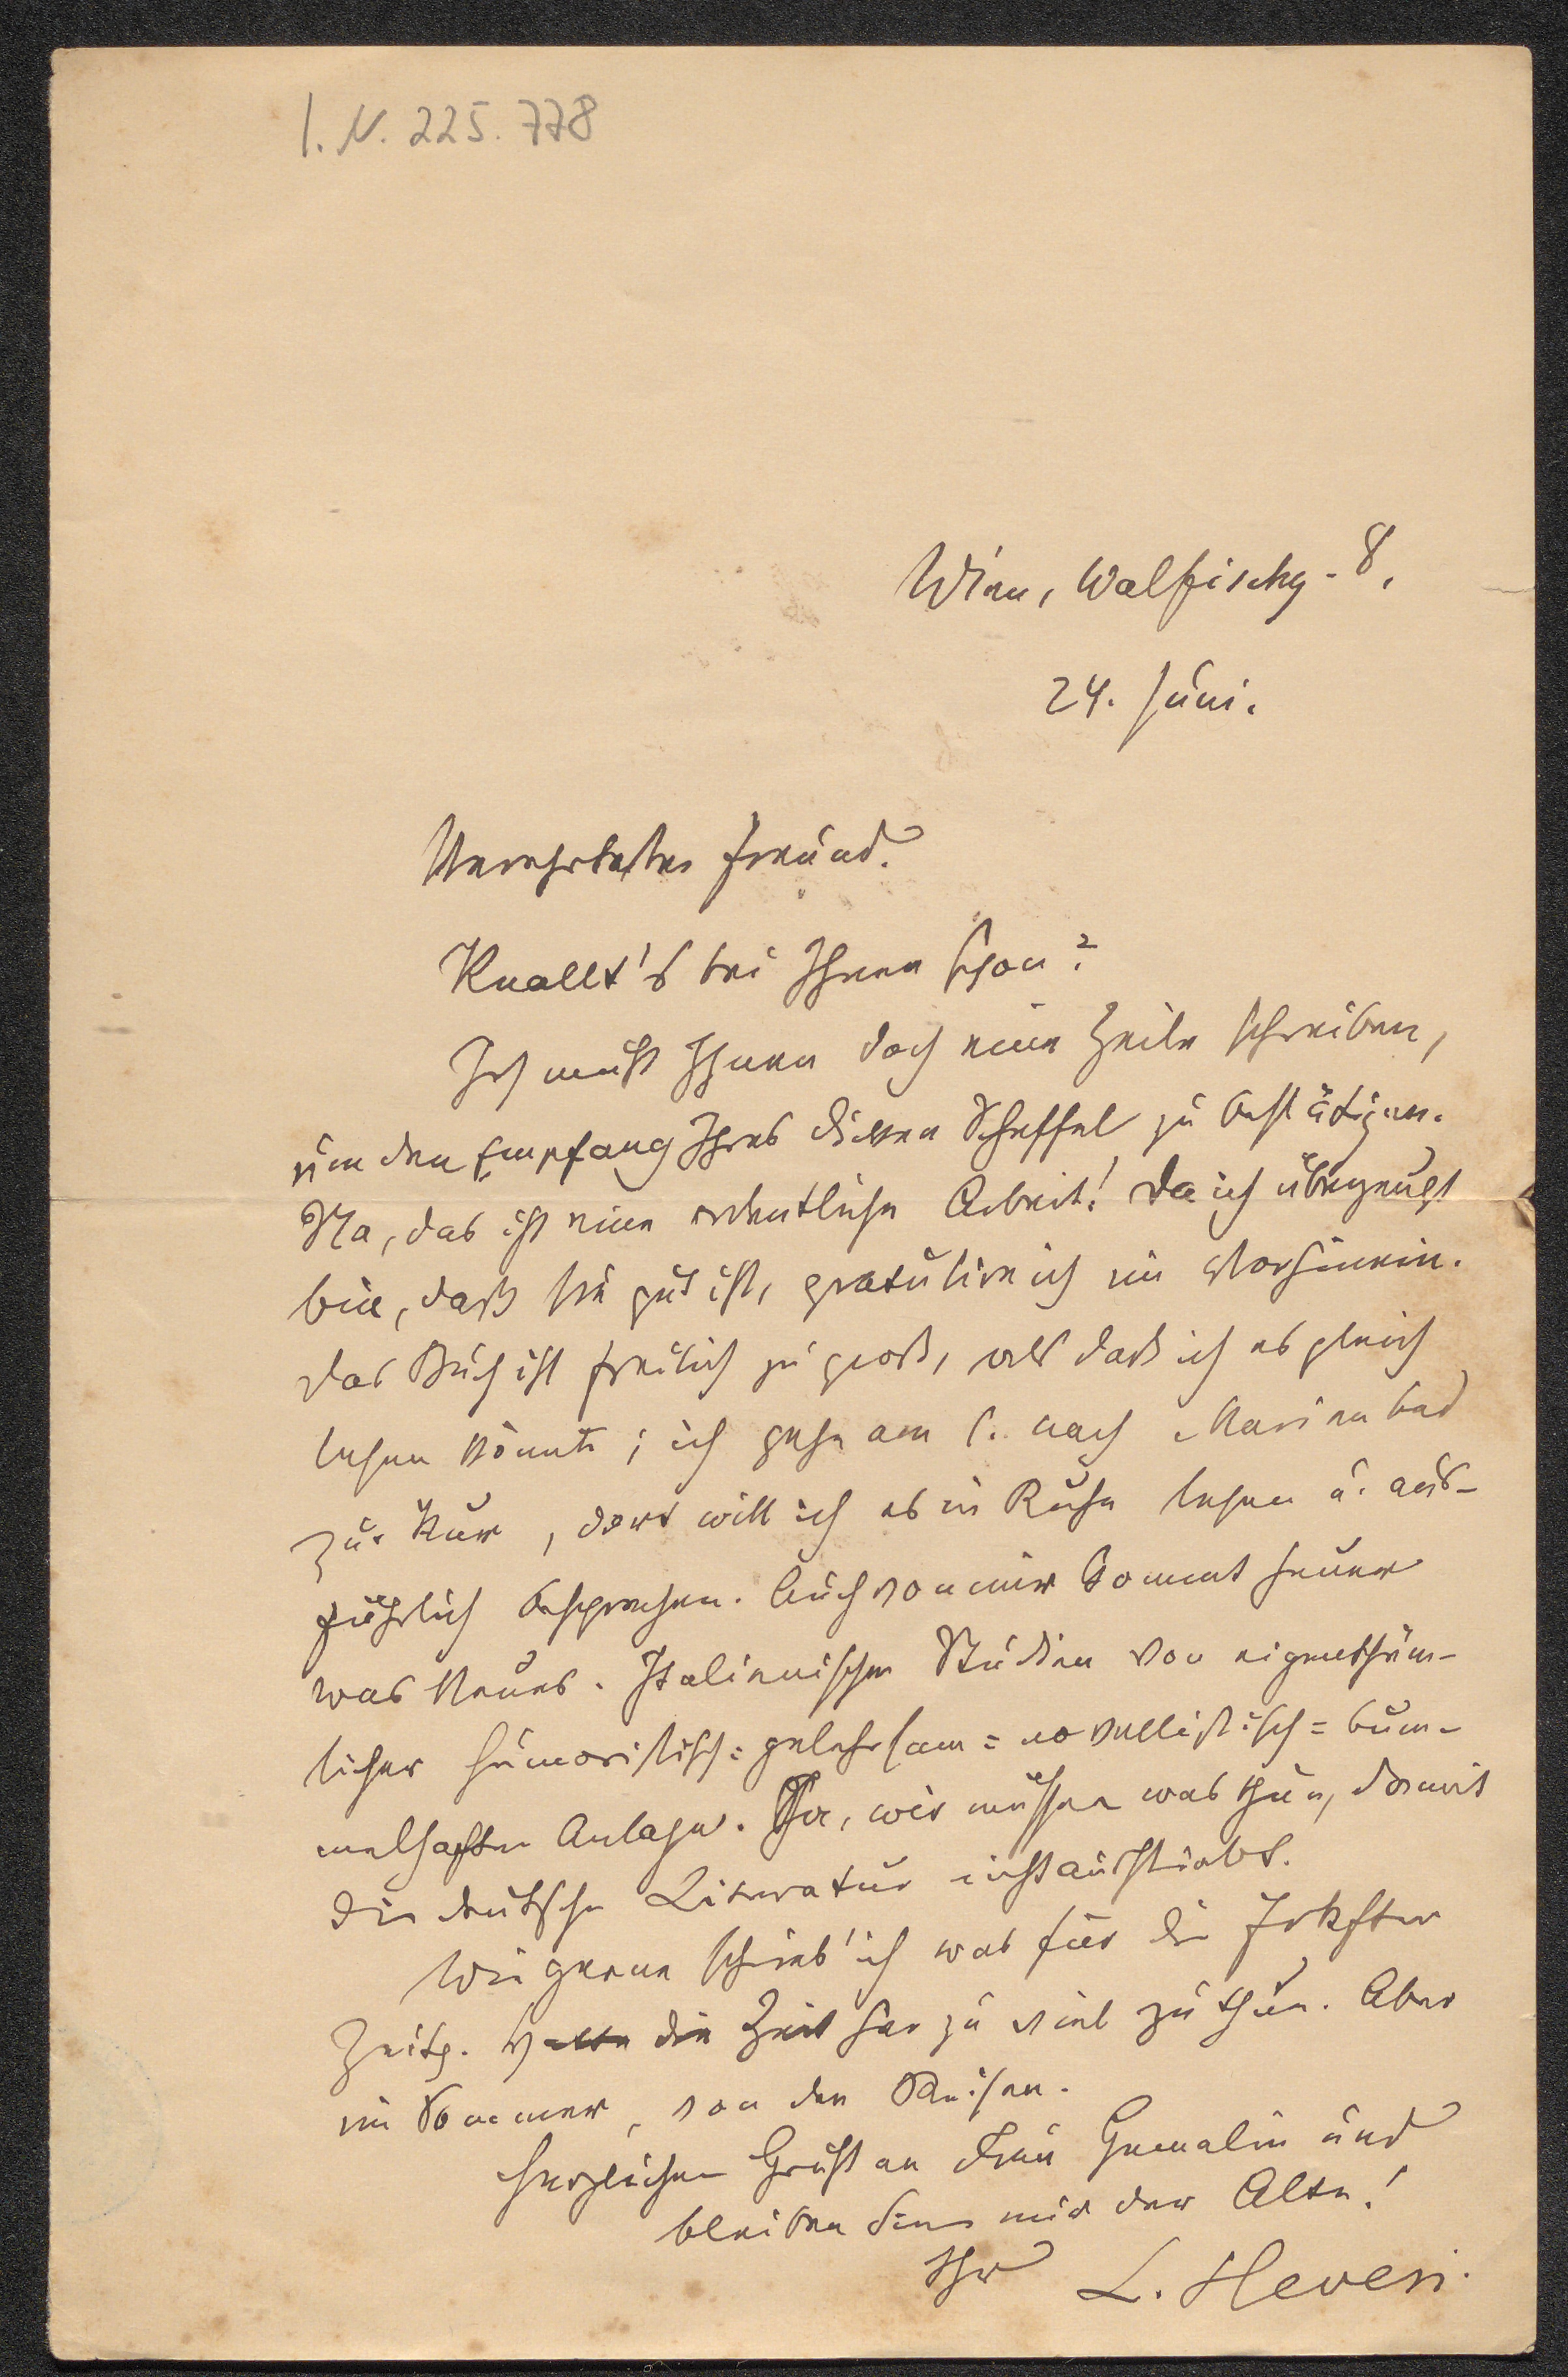 I. N. 225.778
Wien, Walfischg. 8,
24. Juni.
Verehrtester Freund.
Knallt's bei Ihnen schon?
Ich muß Ihnen doch eine Zeile schreiben,
um den Empfang Ihres dicken Scheffel zu bestätigen.
Na, das ist eine ordentliche Arbeit! Da ich überzeugt
bin, daß sie gut ist, gratulire ich im Vorhinein.
Das Buch ist freilich zu groß, als daß ich es gleich
lesen könnte; ich gehe am 1. nach Marienbad
zur Kur, dort will ich es in Ruhe lesen u. aus-
führlich besprechen. Auch von mir kommt heuer
was Neues. Italienische Studien von eigenthüm-
licher humoristisch=gelehrsam=novellistisch=bum-
melhafter Anlage. Ja, wir müssen was thun, damit
die deutsche Literatur nicht ausstirbt.
Wie gerne schrieb' ich was für die Frkfter
Zeitg. die Zeit her zu viel zu thun. Aber
im Sommer, von den Reisen.
Herzlichen Gruß an Frau Gemalin und
bleiben Sie mir der Alte!
Ihr L. Hevesi.